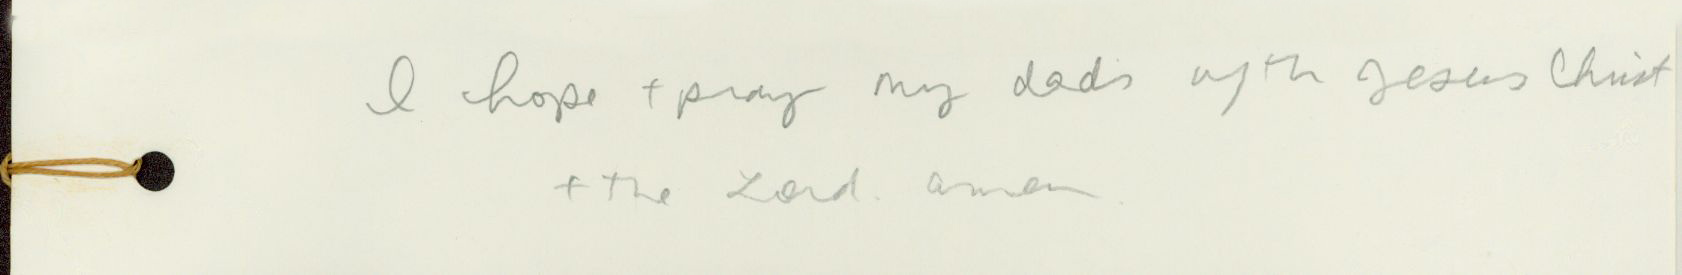 I hope + pray my dads with Jesus Christ
+ the Lord. amen.